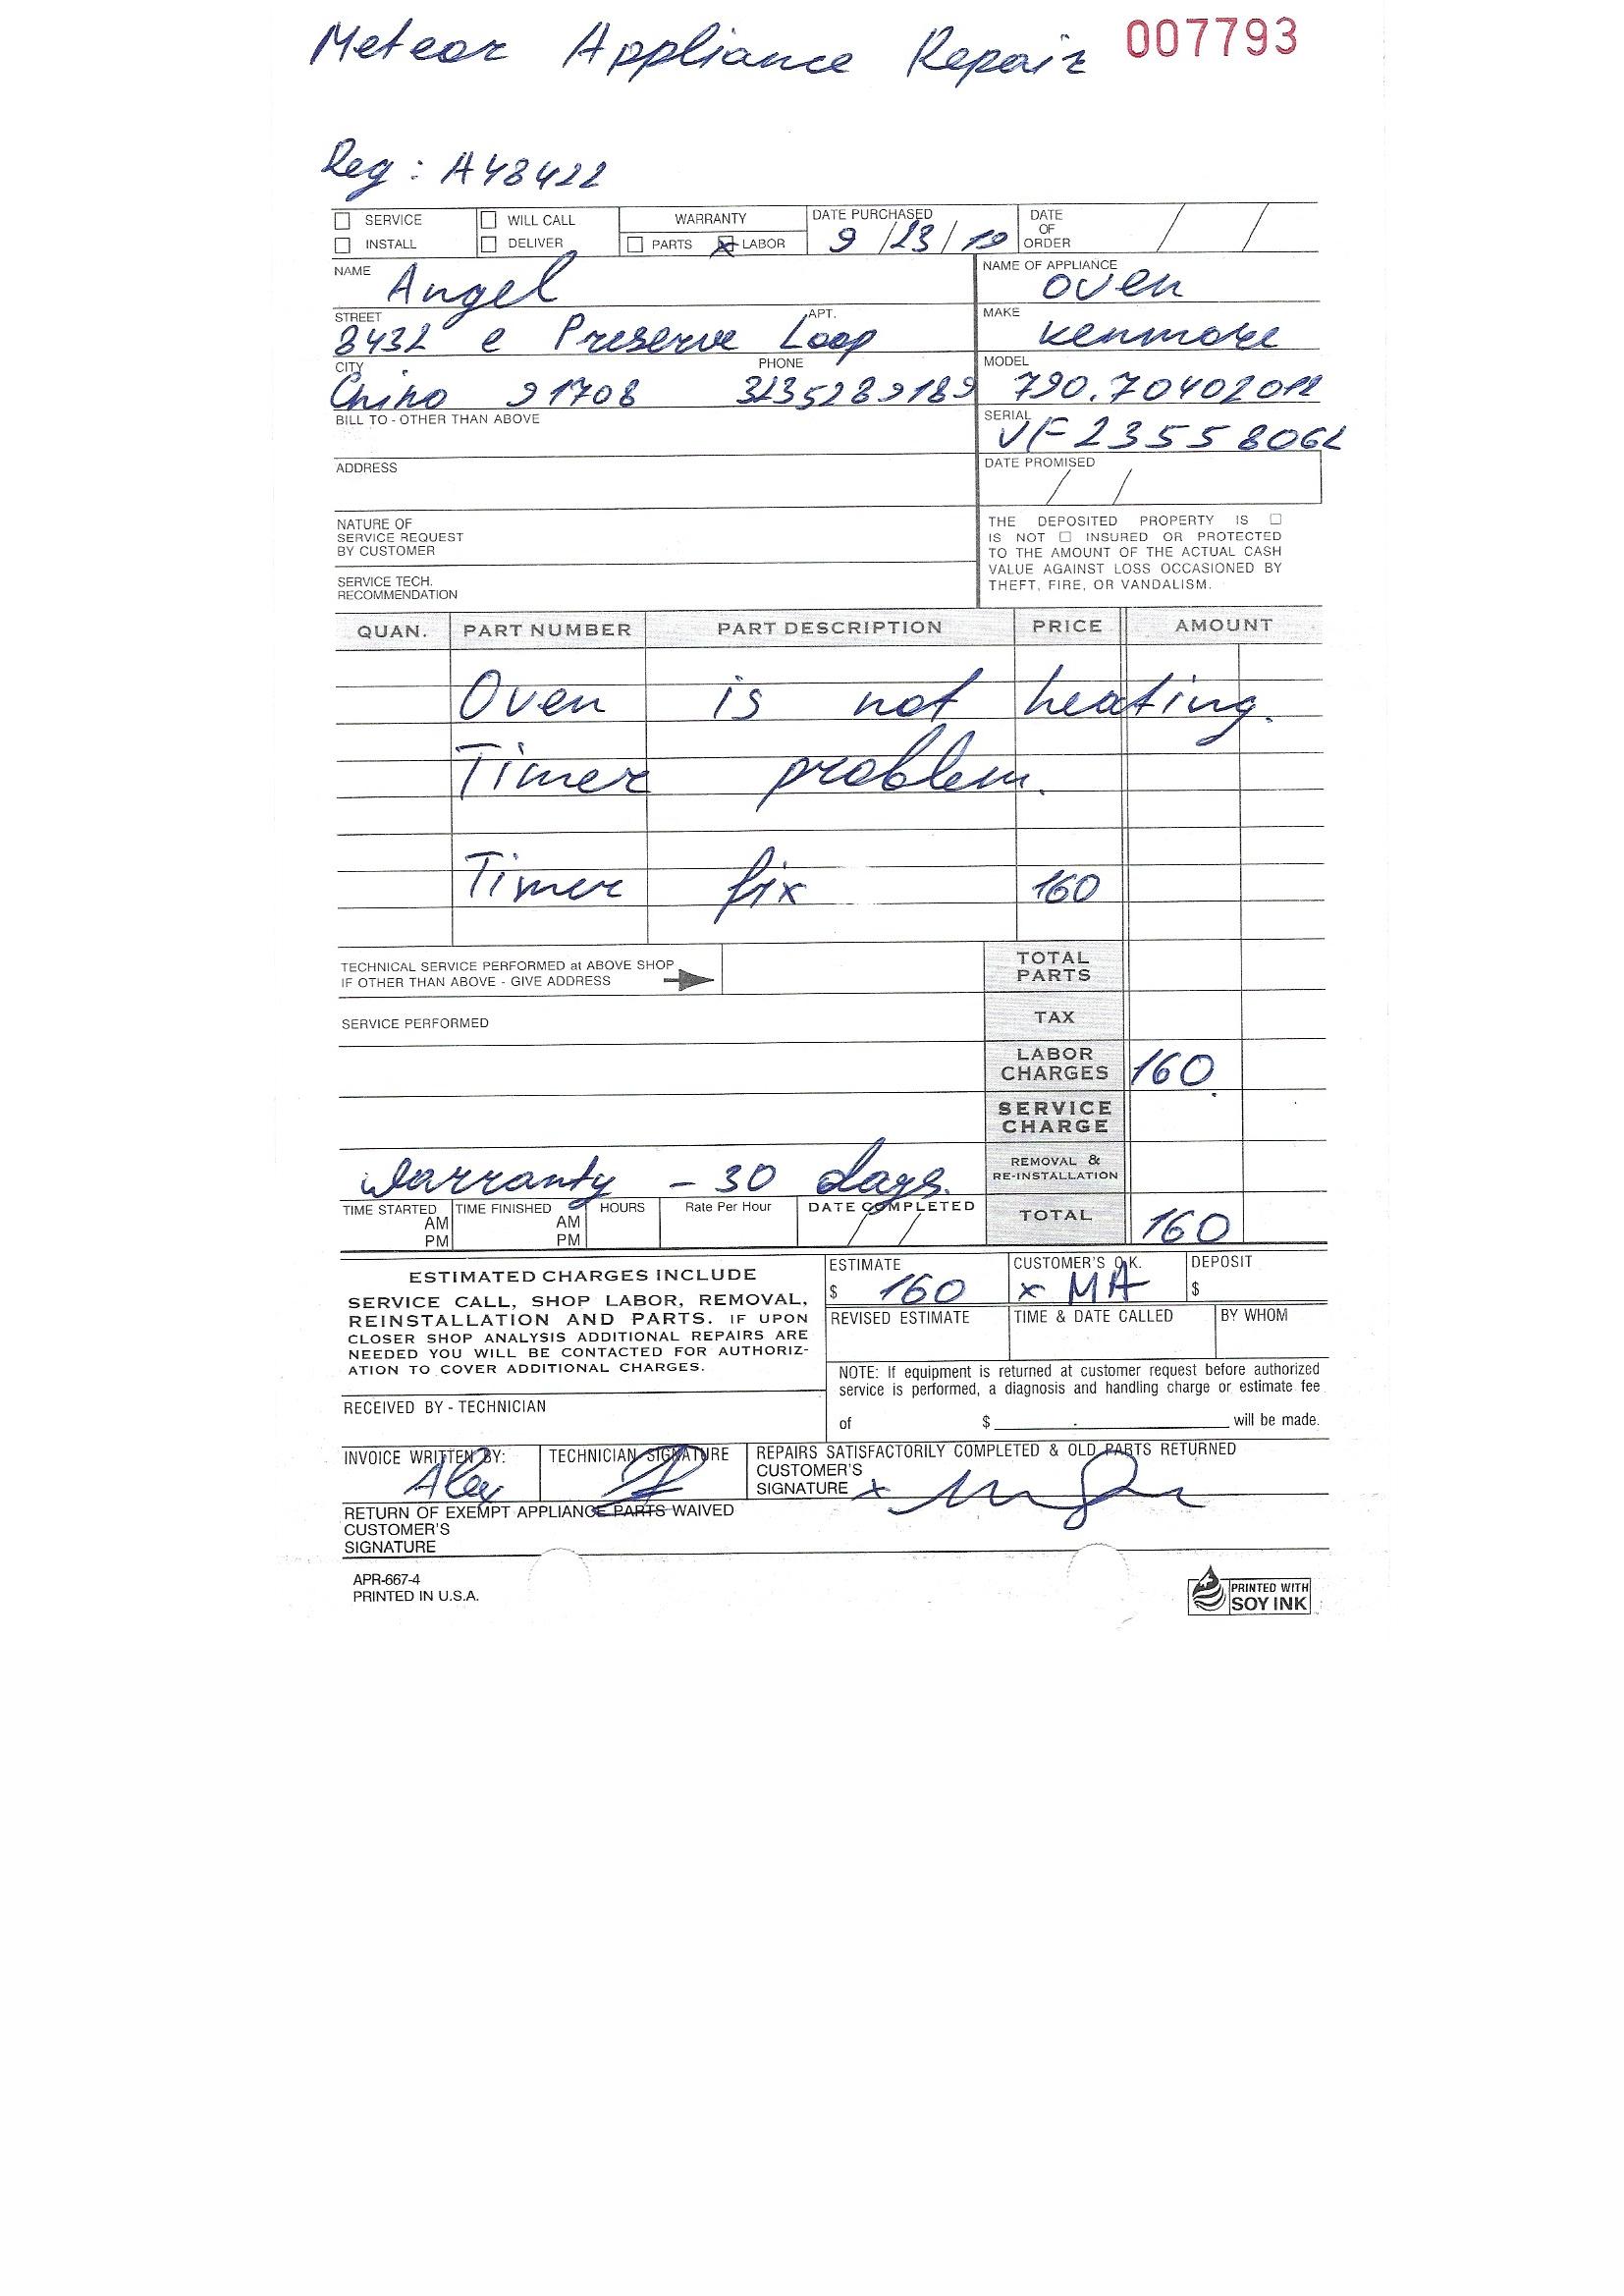 Meteor Appliance Repair 007793
Reg: A48422
SERVICE WILL CALL WARRANTY DATE PURCHASED DATE OF ORDER
INSTALL DELIVER PARTS LABOR 9/23/19
NAME Angel NAME OF APPLIANCE oven
STREET 8432 e Preserve Loop APT. MAKE kenmore
CITY Chino 91708 PHONE 3235289189 MODEL 790.70402012
BILL TO - OTHER THAN ABOVE SERIAL VF23558062
ADDRESS DATE PROMISED / /
NATURE OF
SERVICE REQUEST
BY CUSTOMER
SERVICE TECH.
RECOMMENDATION
THE DEPOSITED PROPERTY IS
IS NOT INSURED OR PROTECTED
TO THE AMOUNT OF THE ACTUAL CASH
VALUE AGAINST LOSS OCCASIONED BY
THEFT, FIRE, OR VANDALISM.
QUAN. PART NUMBER PART DESCRIPTION PRICE AMOUNT
Oven is not heating.
Timer problem.
Timer fix 160
TECHNICAL SERVICE PERFORMED at ABOVE SHOP
IF OTHER THAN ABOVE - GIVE ADDRESS
TOTAL PARTS
SERVICE PERFORMED TAX
LABOR CHARGES 160
SERVICE CHARGE
warranty - 30 days. REMOVAL & RE-INSTALLATION
TIME STARTED AM PM TIME FINISHED AM PM HOURS Rate Per Hour DATE COMPLETED / / TOTAL 160
ESTIMATED CHARGES INCLUDE
SERVICE CALL, SHOP LABOR, REMOVAL,
REINSTALLATION AND PARTS. IF UPON
CLOSER SHOP ANALYSIS ADDITIONAL REPAIRS ARE
NEEDED YOU WILL BE CONTACTED FOR AUTHORIZ-
ATION TO COVER ADDITIONAL CHARGES.
ESTIMATE $ 160 CUSTOMER'S O.K. x MA DEPOSIT $
REVISED ESTIMATE TIME & DATE CALLED BY WHOM
NOTE: If equipment is returned at customer request before authorized
service is performed, a diagnosis and handling charge or estimate fee
of $ will be made.
RECEIVED BY - TECHNICIAN
INVOICE WRITTEN BY: Alex TECHNICIAN SIGNATURE REPAIRS SATISFACTORILY COMPLETED & OLD PARTS RETURNED
CUSTOMER'S
SIGNATURE x
RETURN OF EXEMPT APPLIANCE PARTS WAIVED
CUSTOMER'S
SIGNATURE
APR-667-4
PRINTED IN U.S.A.
PRINTED WITH
SOY INK